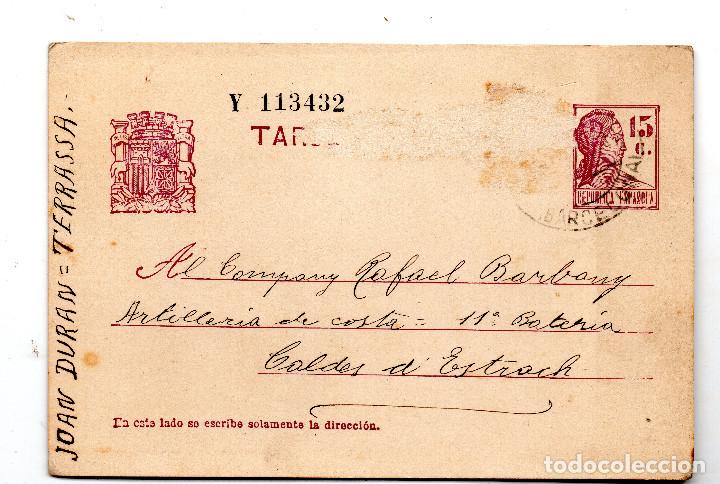 Y 113432
TAR
15
C.
REPUBLICA ESPAÑOLA
BARCE
Al Company Rafael Barbany
Artilleria de costa = 11ª Bateria
Caldes d'Estrach
En este lado se escribe solamente la dirección.
JOAN DURAN = TERRASSA.-
todocoleccion
todocoleccion.net